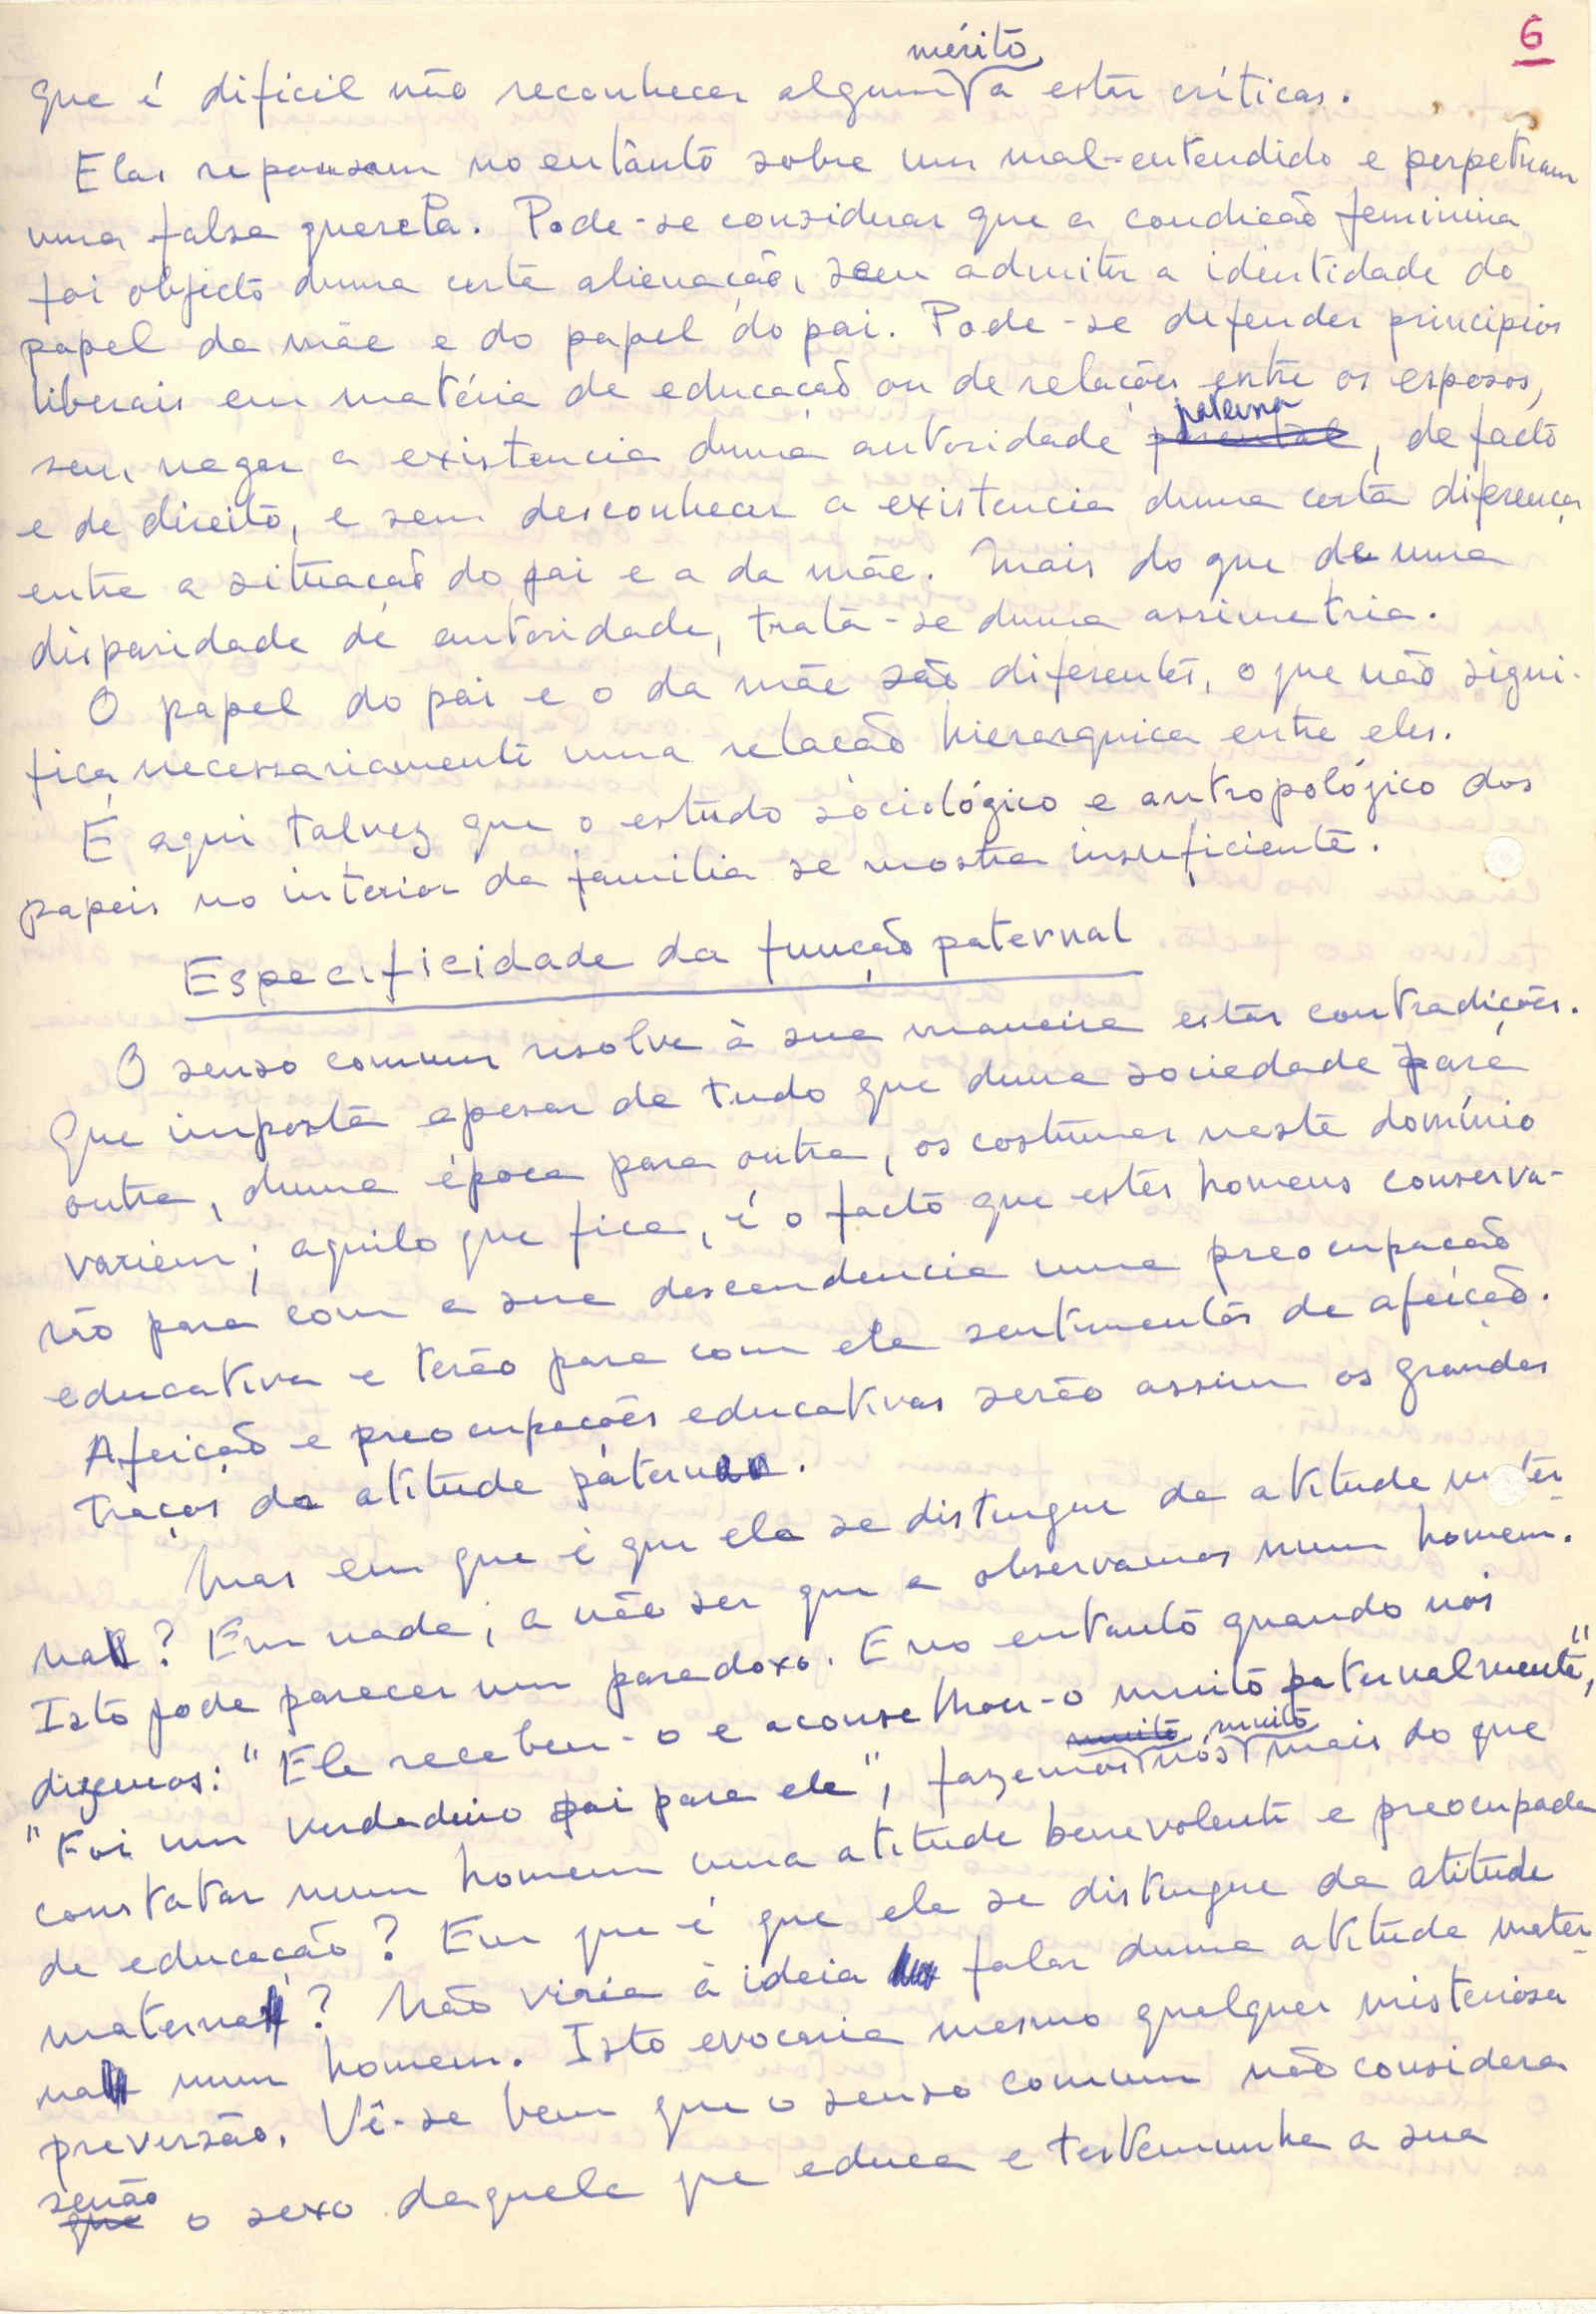 6
mérito
que é dificil não reconhecer algum a estas críticas.
Elas repousam no entânto sobre um mal-entendido e perpetuam
uma falsa querela. Pode-se considerar que a condicão feminina
foi objecto duma certa alienação, sem admitir a identidade do
papel da mãe e do papel do pai. Pode-se defender principios
liberais em matéria de educação ou de relações entre os esposos,
paterna
sem negar a existencia duma autoridade parental, de facto
e de direito, e sem desconhecer a existencia duma certa diferença
entre a situacão do pai e a da mãe. Mais do que de uma
disparidade de autoridade, trata-se duma assimetria.
O papel do pai e o da mãe são diferentes, o que não signi-
fica necessariamente uma relacão hierarquica entre eles.
É aqui talvez que o estudo sociológico e antropológico dos
papeis no interior da familia se mostra insuficiente.
Especificidade da função paternal
O senso comum resolve à sua maneira estas contradições.
Que importa apesar de tudo que duma sociedade para
outra, duma época para outra, os costumes neste domínio
variem; aquilo que fica, é o facto que estes homens conserva-
rão para com a sua descendencia uma preocupacão
educativa e terão para com ela sentimentos de afeição.
Afeição e preocupacões educativas serão assim os grandes
traços da atitude paterna.
Mas em que é que ela se distingue da atitude mater-
na? Em nada; a não ser que a observamos num homem.
Isto pode parecer um paradoxo. E no entanto quando nós
dizemos: "Ele recebeu-o e aconselhou-o muito paternalmente",
muito muito
"Foi um verdadeiro pai para ele", fazemos nós mais do que
constatar num homem uma atitude benevolente e preocupada
de educacão? Em que é que ela se distingue da atitude
materna? Não viria à ideia falar duma atitude mater-
na num homem. Isto evocaria mesmo qualquer misteriosa
preversão. Vê-se bem que o senso comum não considera
senão
que o sexo daquele que educa e testemunha a sua